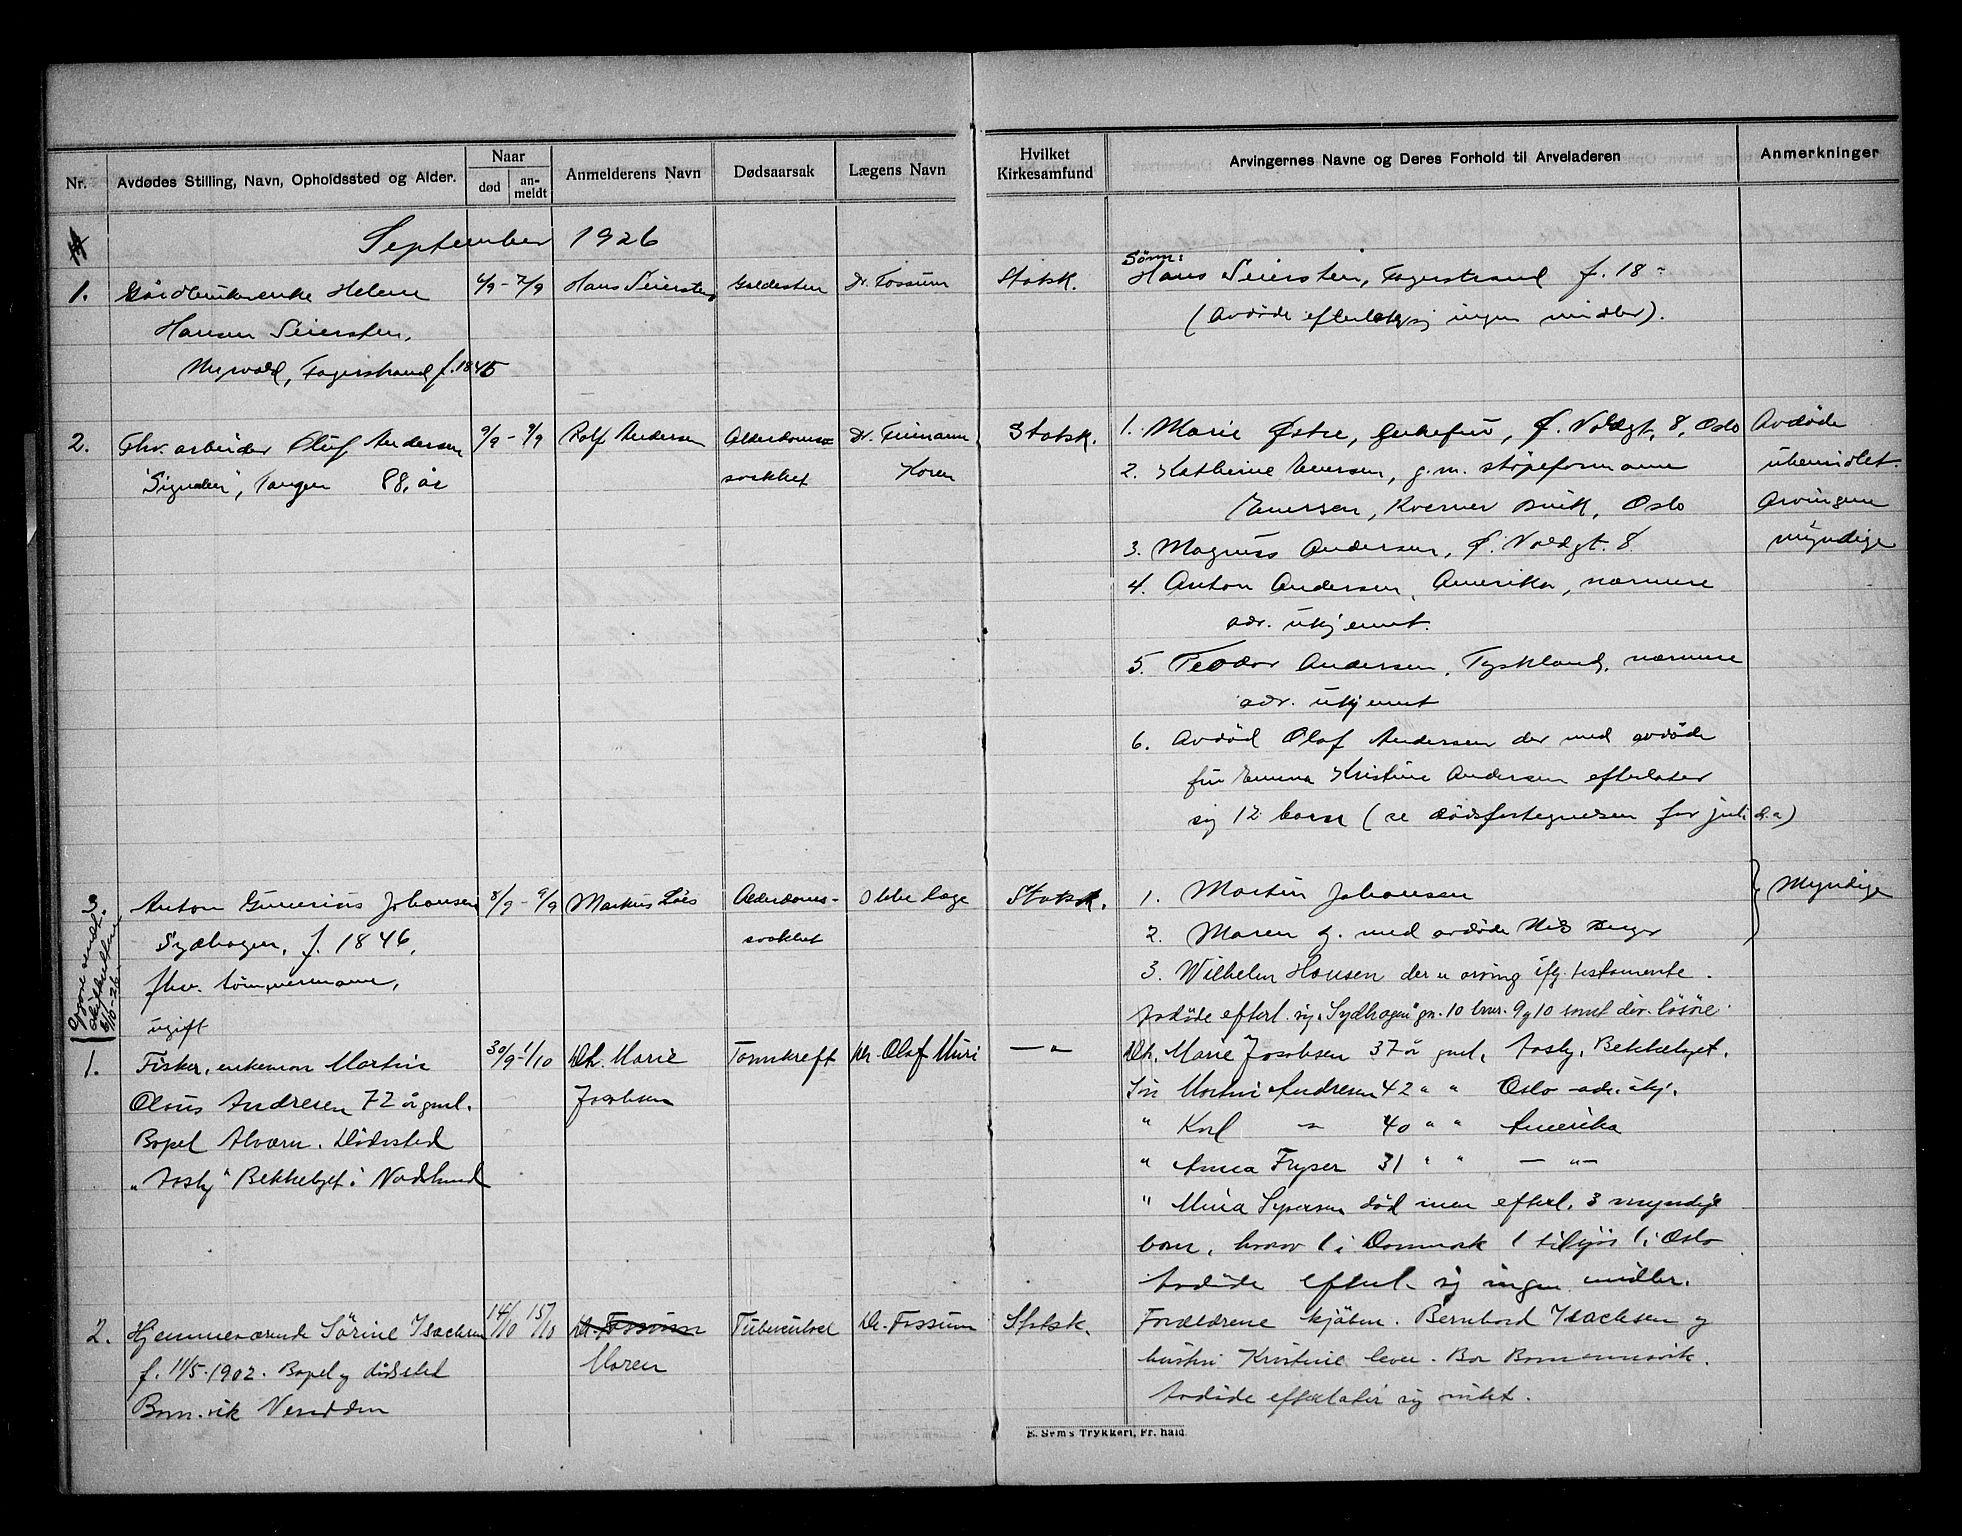 Nr.
Avdødes Stilling, Navn, Opholdssted og Alder.
Naar
død
an-
meldt
Anmelderens Navn
Dødsaarsak
Lægens Navn
Hvilket
Kirkesamfund
Arvingernes Navne og Deres Forhold til Arveladeren
Anmerkninger
September 1926
1. Gårdbrukerenke Helene
Hansen Seiersten,
Myrvold, Fagerstrand f. 1845
6/9 - 7/9
Hans Seiersten
Galdesten
Dr. Fossum
Statsk.
Sønn:
Hans Seiersten, Fagerstrand f. 18
(Avdøde efterlot sig ingen midler).
2. Fhv. arbeider Oluf Andersen
"Signalen", Tangen 88 år
9/9 - 9/9
Rolf Andersen
Alderdoms-
svakhet
Dr.
Koren
Statsk.
1. Marie Østre, enkefru, Ø. Voldgt. 8, Oslo
2. Kathrine Evensen, g.m. støpeformann
Evensen, Kværner bruk, Oslo
3. Magnus Andersen, Ø. Voldgt. 8
4. Anton Andersen, Amerika, nærmere
adr. ukjennt.
5. Teodor Andersen, Tyskland, nærmere
adr. ukjennt
6. Avdød Olaf Andersen der med avdøde
fru Emma Kristine Andersen efterlater
sig 12 barn (se dødsfortegnelsen for juli d.a)
Avdøde
ubemidlet.
Arvingene
myndige
3. Anton Gunerius Johansen
Sydhagen, f. 1846,
fhv. tømmermann,
ugift
Opgave sendt
skifteretten
6/10-26
8/9 - 9/9
Markus Løes
Alderdoms-
svakhet
Ikke læge
Statsk.
1. Martin Johansen
2. Maren g. med avdøde Nils Berger
3. Wilhelm Hansen der er arving iflg testamente.
Avdøde efterl. sig "Sydhagen" gn. 10 bnr. 9 og 10 samt div. løsøre.
Myndige
1. Fisker, enkemann Martin
Olaus Andresen 72 år gml.
Bopel Alværn. Dødssted
"Aasly" Bekkelaget i Nordstrand
30/9 - 1/10
Dtr. Marie
Jacobsen
Tarmkreft
Dr. Olaf Muri
— " —
Dtr. Marie Jacobsen 37 år gml. Aasly, Bekkelaget.
Søn Martin Andresen 42 " " Oslo adr. ukj.
" Karl " 40 " " Amerika
" Anna Fryser 31 " " — " —
" Mina Syversen død men efterl. 3 myndige
barn, hvorav 1 i Danmark 1 tilsjøs 1 i Oslo
Avdøde efterl. sig ingen midler.
2. Hjemmeværende Sørine Isachsen
f. 11/5-1902. Bopel og dødssted
Born.vik Nesodden
14/10 15/10
Dr. Fossum
Moren
Tuberculose
Dr. Fossum
Statsk.
Forældrene skjøtm. Bernhard Isachsen og
hustru Kristine lever. Bor Bommenvik.
Avdøde efterlater sig intet.
E. Sem's Trykkeri, Fr. hald